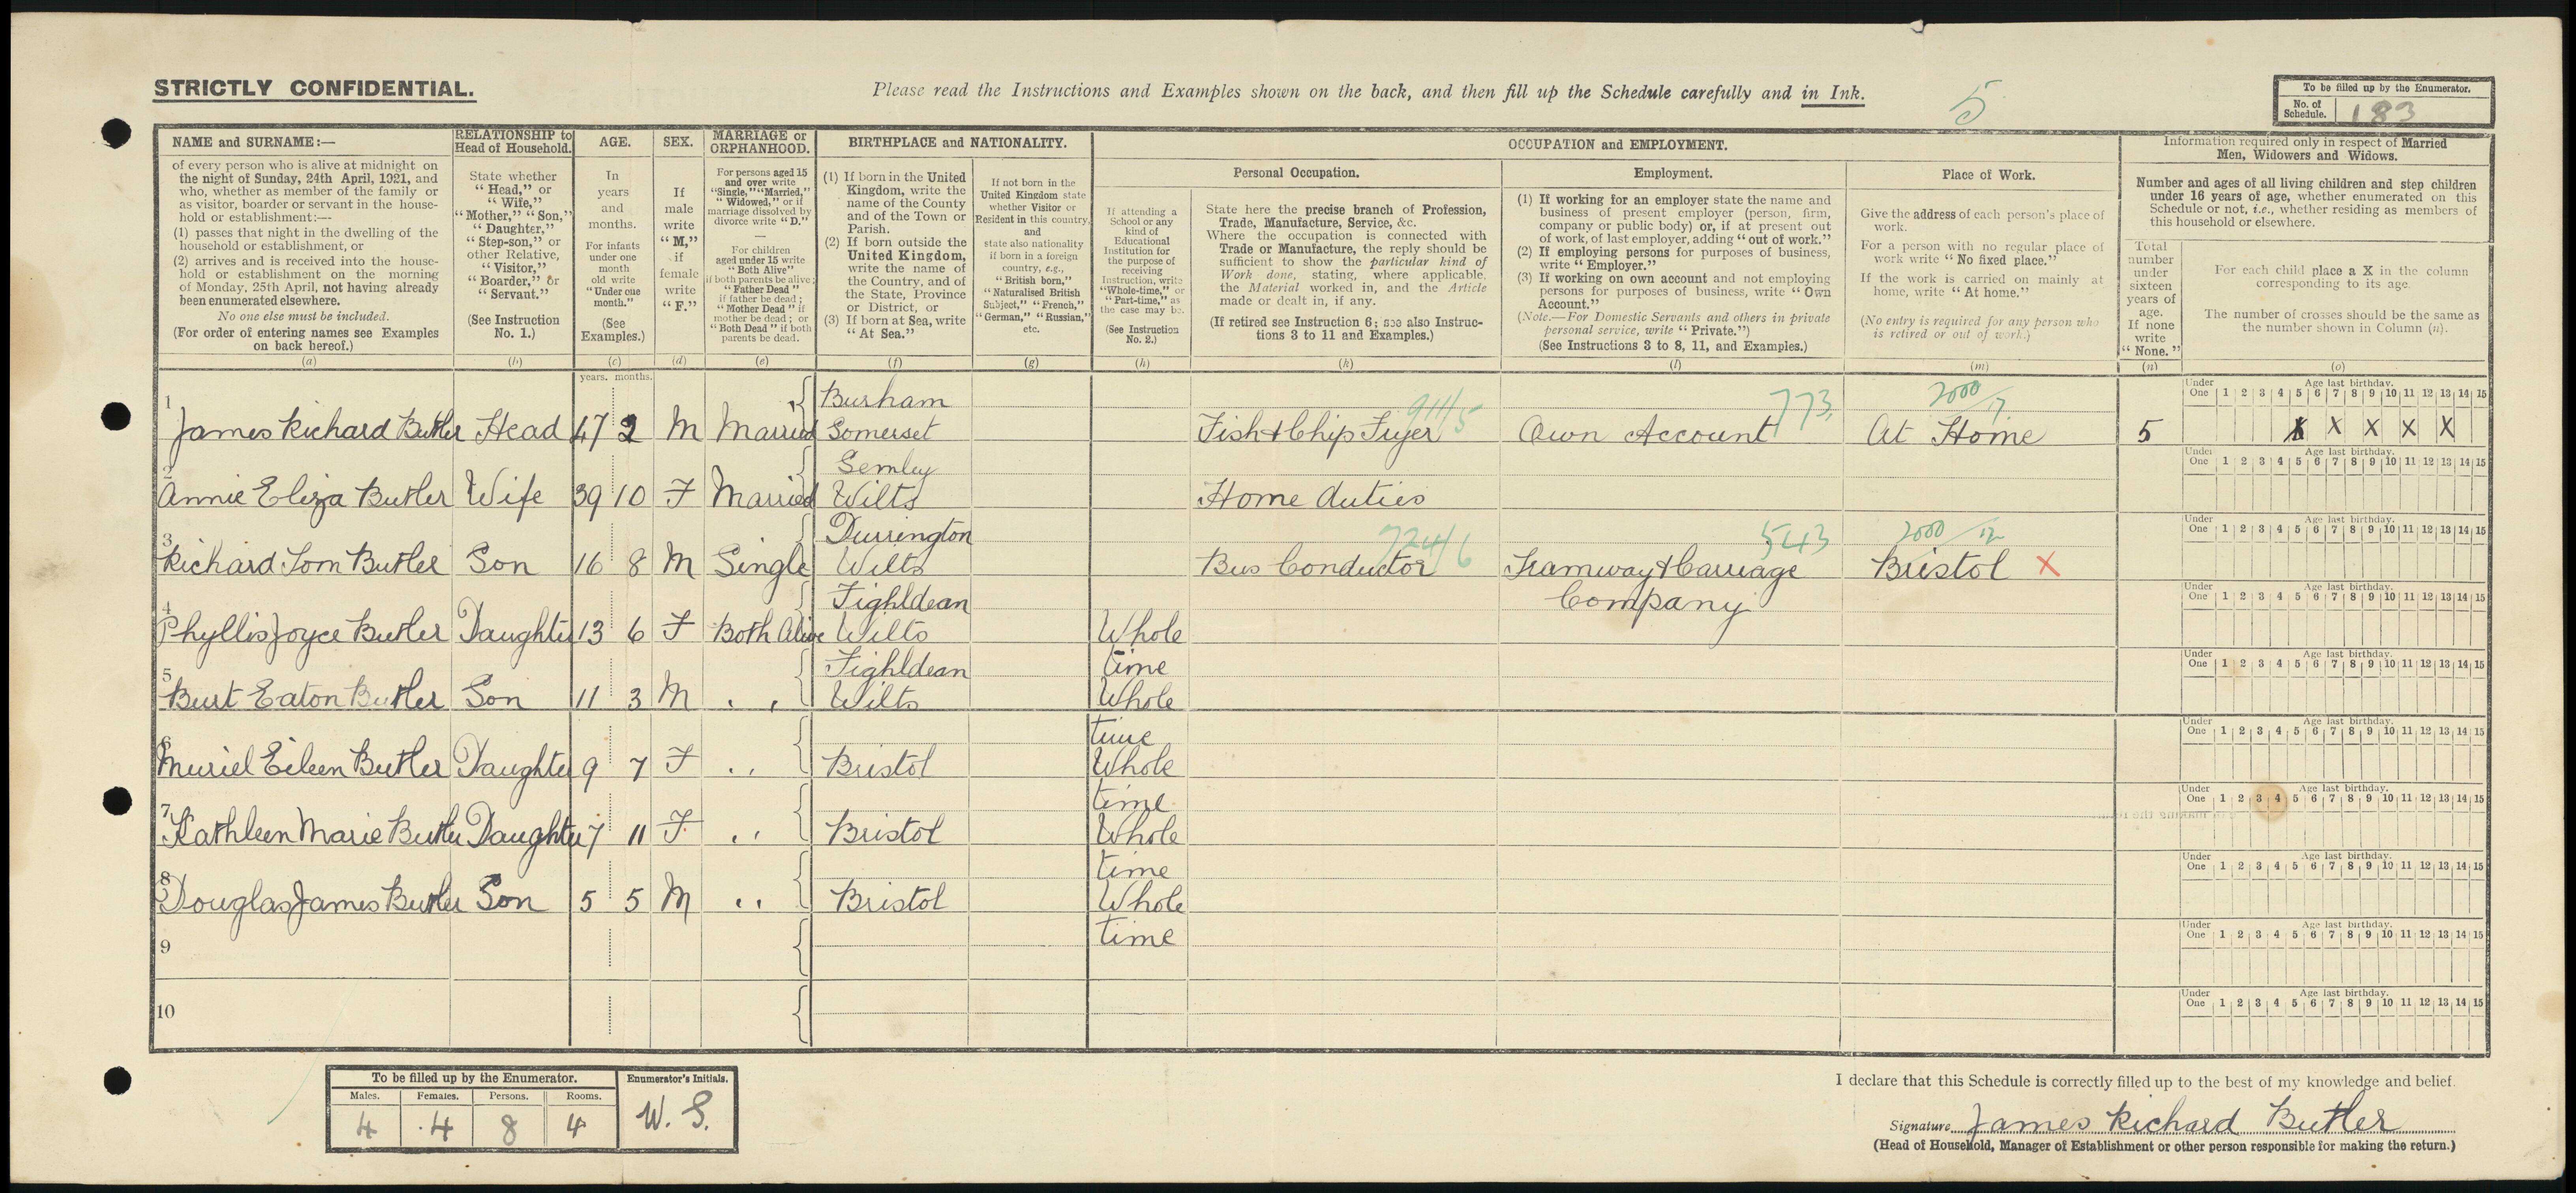 STRICTLY CONFIDENTIAL.
Please read the Instructions and Examples shown on the back, and then fill up the Schedule carefully and in Ink.
5
To be filled up by the Enumerator.
No. of Schedule. 183
NAME and SURNAME:—
of every person who is alive at midnight on
the night of Sunday, 24th April, 1921, and
who, whether as member of the family or
as visitor, boarder or servant in the house-
hold or establishment:—
(1) passes that night in the dwelling of the
household or establishment, or
(2) arrives and is received into the house-
hold or establishment on the morning
of Monday, 25th April, not having already
been enumerated elsewhere.
No one else must be included.
(For order of entering names see Examples
on back hereof.)
(a)
RELATIONSHIP to
Head of Household.
State whether
"Head," or
"Wife,"
"Mother," "Son,"
"Daughter,"
"Step-son," or
other Relative,
"Visitor,"
"Boarder," or
"Servant."
(See Instruction
No. 1.)
(b)
AGE.
In
years
and
months.
For infants
under one
month
old write
"Under one
month."
(See
Examples.)
(c)
years. months.
SEX.
If
male
write
"M,"
if
female
write
"F."
(d)
MARRIAGE or
ORPHANHOOD.
For persons aged 15
and over write
"Single," "Married,"
"Widowed," or if
marriage dissolved by
divorce write "D."
—
For children
aged under 15 write
"Both Alive"
if both parents be alive;
"Father Dead"
if father be dead;
"Mother Dead" if
mother be dead; or
"Both Dead" if both
parents be dead.
(e)
BIRTHPLACE and NATIONALITY.
(1) If born in the United
Kingdom, write the
name of the County
and of the Town or
Parish.
(2) If born outside the
United Kingdom,
write the name of
the Country, and of
the State, Province
or District, or
(3) If born at Sea, write
"At Sea."
(f)
If not born in the
United Kingdom state
whether Visitor or
Resident in this country,
and
state also nationality
if born in a foreign
country, e.g.,
"British born,"
"Naturalised British
Subject," "French,"
"German," "Russian,"
etc.
(g)
OCCUPATION and EMPLOYMENT.
If attending a
School or any
kind of
Educational
Institution for
the purpose of
receiving
Instruction, write
"Whole-time," or
"Part-time," as
the case may be.
(See Instruction
No. 2.)
(h)
Personal Occupation.
State here the precise branch of Profession,
Trade, Manufacture, Service, &c.
Where the occupation is connected with
Trade or Manufacture, the reply should be
sufficient to show the particular kind of
Work done, stating, where applicable,
the Material worked in, and the Article
made or dealt in, if any.
(If retired see Instruction 6; see also Instruc-
tions 3 to 11 and Examples.)
(k)
Employment.
(1) If working for an employer state the name and
business of present employer (person, firm,
company or public body) or, if at present out
of work, of last employer, adding "out of work."
(2) If employing persons for purposes of business,
write "Employer."
(3) If working on own account and not employing
persons for purposes of business, write "Own
Account."
(Note.—For Domestic Servants and others in private
personal service, write "Private.")
(See Instructions 3 to 8, 11, and Examples.)
(l)
Place of Work.
Give the address of each person's place of
work.
For a person with no regular place of
work write "No fixed place."
If the work is carried on mainly at
home, write "At home."
(No entry is required for any person who
is retired or out of work.)
(m)
Information required only in respect of Married
Men, Widowers and Widows.
Number and ages of all living children and step children
under 16 years of age, whether enumerated on this
Schedule or not, i.e., whether residing as members of
this household or elsewhere.
Total
number
under
sixteen
years of
age.
If none
write
"None."
(n)
For each child place a X in the column
corresponding to its age.
The number of crosses should be the same as
the number shown in Column (n).
(o)
Under One Age last birthday. 1 2 3 4 5 6 7 8 9 10 11 12 13 14 15
1 James Richard Butler Head 47 2 M Married Burham Somerset Fish & Chip Fryer 911/5 Own Account 773 At Home 2000/7 5 X X X X X
Under One Age last birthday. 1 2 3 4 5 6 7 8 9 10 11 12 13 14 15
2 Annie Eliza Butler Wife 39 10 F Married Semley Wilts Home duties
Under One Age last birthday. 1 2 3 4 5 6 7 8 9 10 11 12 13 14 15
3 Richard Tom Butler Son 16 8 M Single Durrington Wilts Bus Conductor 724/6 Tramway & Carriage Company 543 Bristol X 2000
Under One Age last birthday. 1 2 3 4 5 6 7 8 9 10 11 12 13 14 15
4 Phyllis Joyce Butler Daughter 13 6 F Both Alive Fighldean Wilts Whole time
Under One Age last birthday. 1 2 3 4 5 6 7 8 9 10 11 12 13 14 15
5 Burt Eaton Butler Son 11 3 M " " Fighldean Wilts Whole time
Under One Age last birthday. 1 2 3 4 5 6 7 8 9 10 11 12 13 14 15
6 Muriel Eileen Butler Daughter 9 7 F " " Bristol Whole time
Under One Age last birthday. 1 2 3 4 5 6 7 8 9 10 11 12 13 14 15
7 Kathleen Marie Butler Daughter 7 11 F " " Bristol Whole time
Under One Age last birthday. 1 2 3 4 5 6 7 8 9 10 11 12 13 14 15
8 Douglas James Butler Son 5 5 M " " Bristol Whole time
Under One Age last birthday. 1 2 3 4 5 6 7 8 9 10 11 12 13 14 15
9
Under One Age last birthday. 1 2 3 4 5 6 7 8 9 10 11 12 13 14 15
10
To be filled up by the Enumerator.
Males. Females. Persons. Rooms.
4 4 8 4
Enumerator's Initials.
W. S.
I declare that this Schedule is correctly filled up to the best of my knowledge and belief.
Signature James Richard Butler
(Head of Household, Manager of Establishment or other person responsible for making the return.)